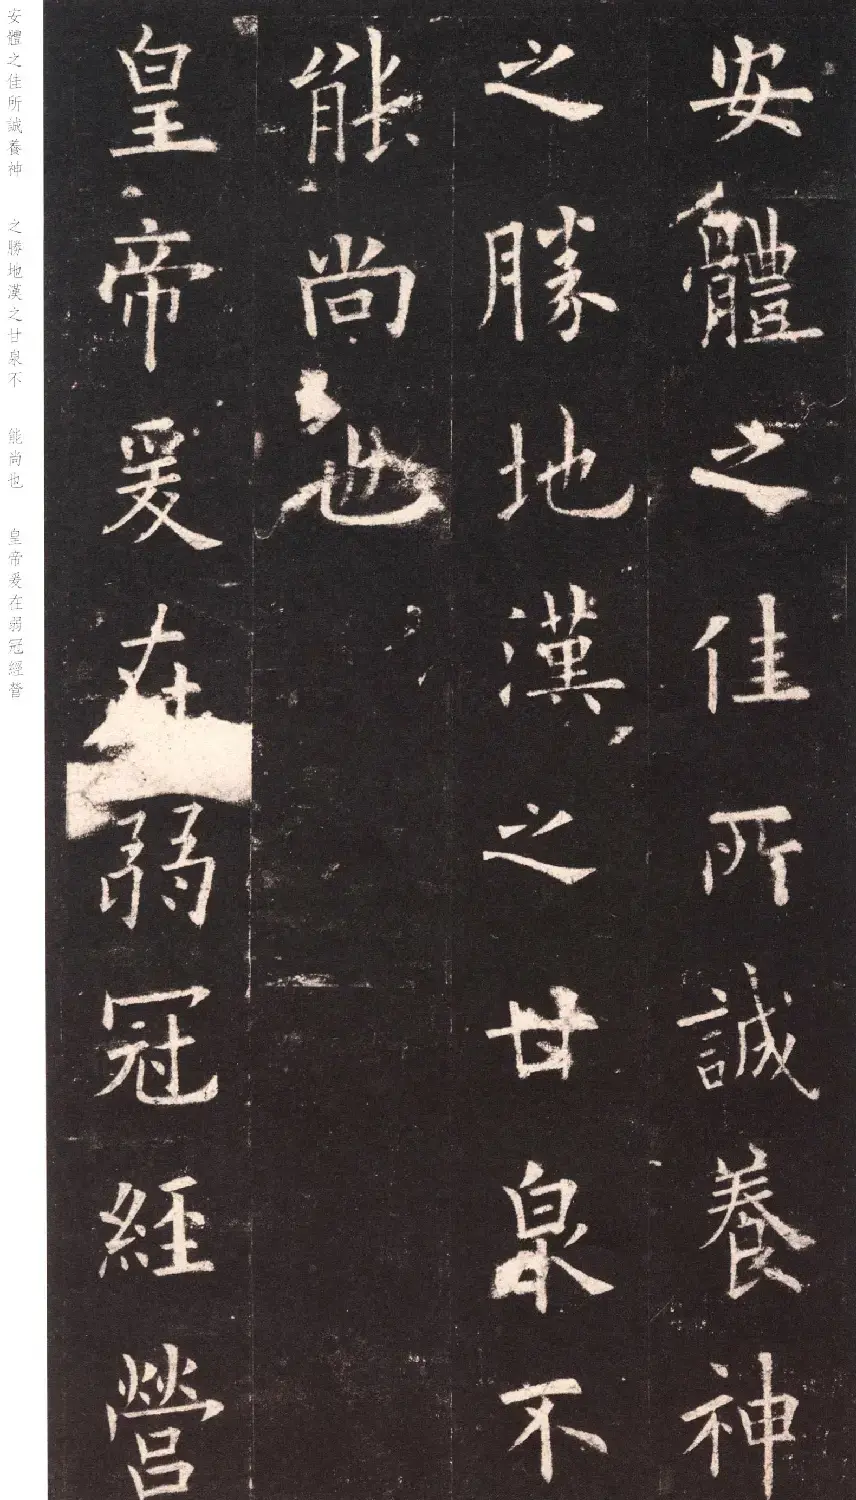 安體之佳所誠養神
之勝地漢之甘泉不
能尚也
皇帝爰在弱冠經營
安體之佳所誠養神 之勝地漢之甘泉不 能尚也 皇帝爰在弱冠經營